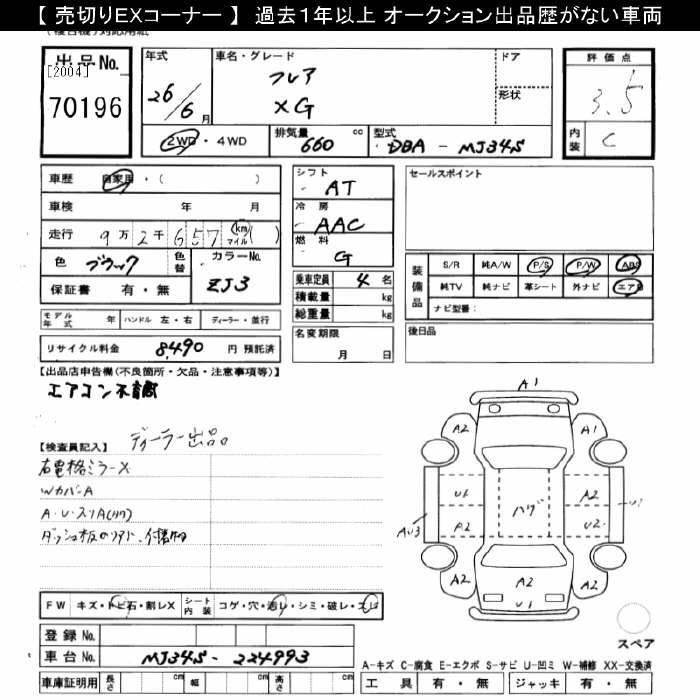 【 売切りEXコーナー 】 過去1年以上 オークション出品歴がない車両
出品No.
[2004]
70196
年式
26/6月
車名・グレード
フレア
XG
ドア
形状
評価点
3.5
内装
C
2WD・4WD
排気量
660 cc
型式
DBA - MJ34S
車歴 自家用・( )
車検 年 月
走行 9万2千657 (km マイル)( )
色 ブラック
色替
カラーNo.
ZJ3
保証書 有・無
モデル年式 年 ハンドル 左・右 ディーラー・並行
リサイクル料金 8,490 円 預託済
シフト
AT
冷房
AAC
燃料
G
乗車定員 4 名
積載量 kg
総重量 kg
名変期限
月 日
セールスポイント
装備品
S/R 純A/W P/S P/W ABS
純TV 純ナビ 革シート 外ナビ エアB
ナビ型番:
後日品
【出品店申告欄(不良箇所・欠品・注意事項等)】
エアコン不良
【検査員記入】 ディーラー出品
右電格ミラーX
WカバーA
A・U・スリA(リク)
ダッシュ板
FW キズ・トビ石・割レX
シート内装 コゲ・穴・汚レ・シミ・破レ・スレ
登録No.
車台No. MJ34S - 224993
車庫証明用 長さ cm 幅 cm 高さ cm
A1
A2 A1
U1 A2
P2 U2
AU3
ハゲ
A2 A2
A2
U1
スペア
A-キズ C-腐食 E-エクボ S-サビ U-凹ミ W-補修 XX-交換済
工具 有・無 ジャッキ 有・無